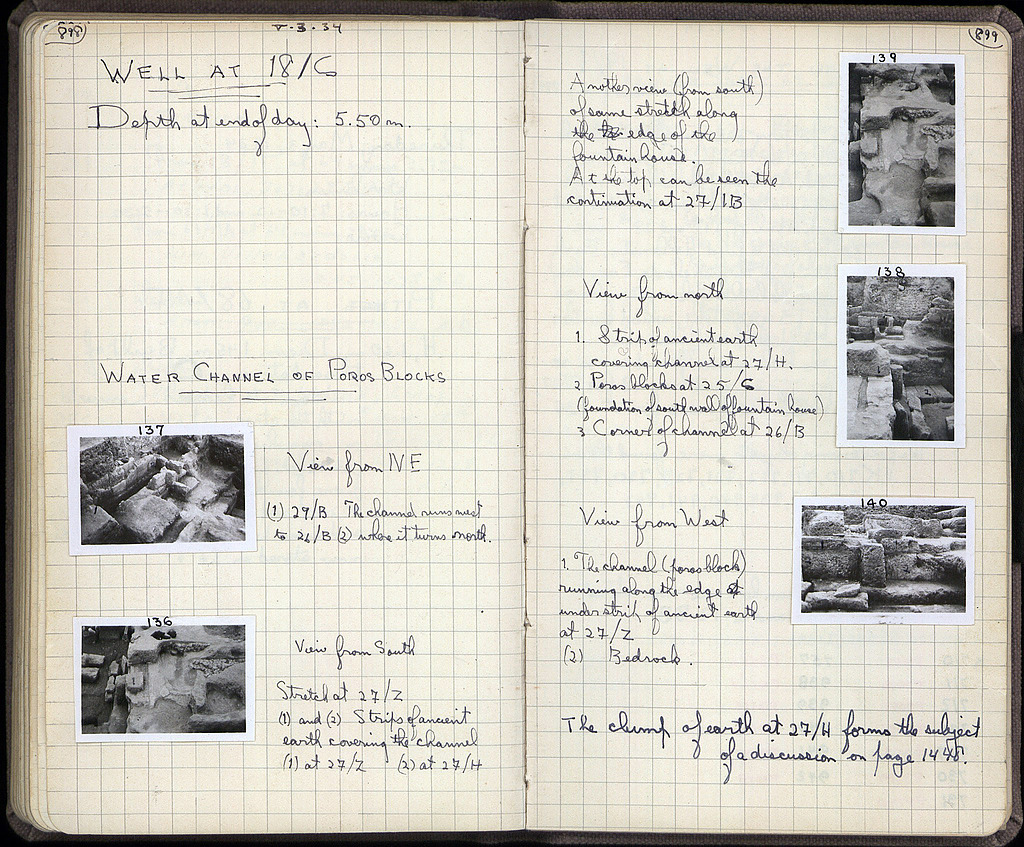 898
V-3-34
WELL AT 18/C
Depth at end of day: 5.50 m.
WATER CHANNEL OF POROS BLOCKS
137
View from NE
(1) 29/B The channel runs west
to 26/B (2) where it turns north.
136
View from South
Stretch at 27/Z
(1) and (2) Strips of ancient
earth covering the channel
(1) at 27/Z (2) at 27/H
899
139
Another view (from south)
of same stretch along
the edge of the
fountain house.
At the top can be seen the
continuation at 27/IB
138
View from north
1. Strip of ancient earth
covering channel at 27/H.
2 Poros blocks at 25/S
(foundation of south wall of fountain house)
3 Corner of channel at 26/B
140
View from West
1. The channel (poros block)
running along the edge
under strip of ancient earth
at 27/Z
(2) Bedrock.
The clump of earth at 27/H forms the subject
of a discussion on page